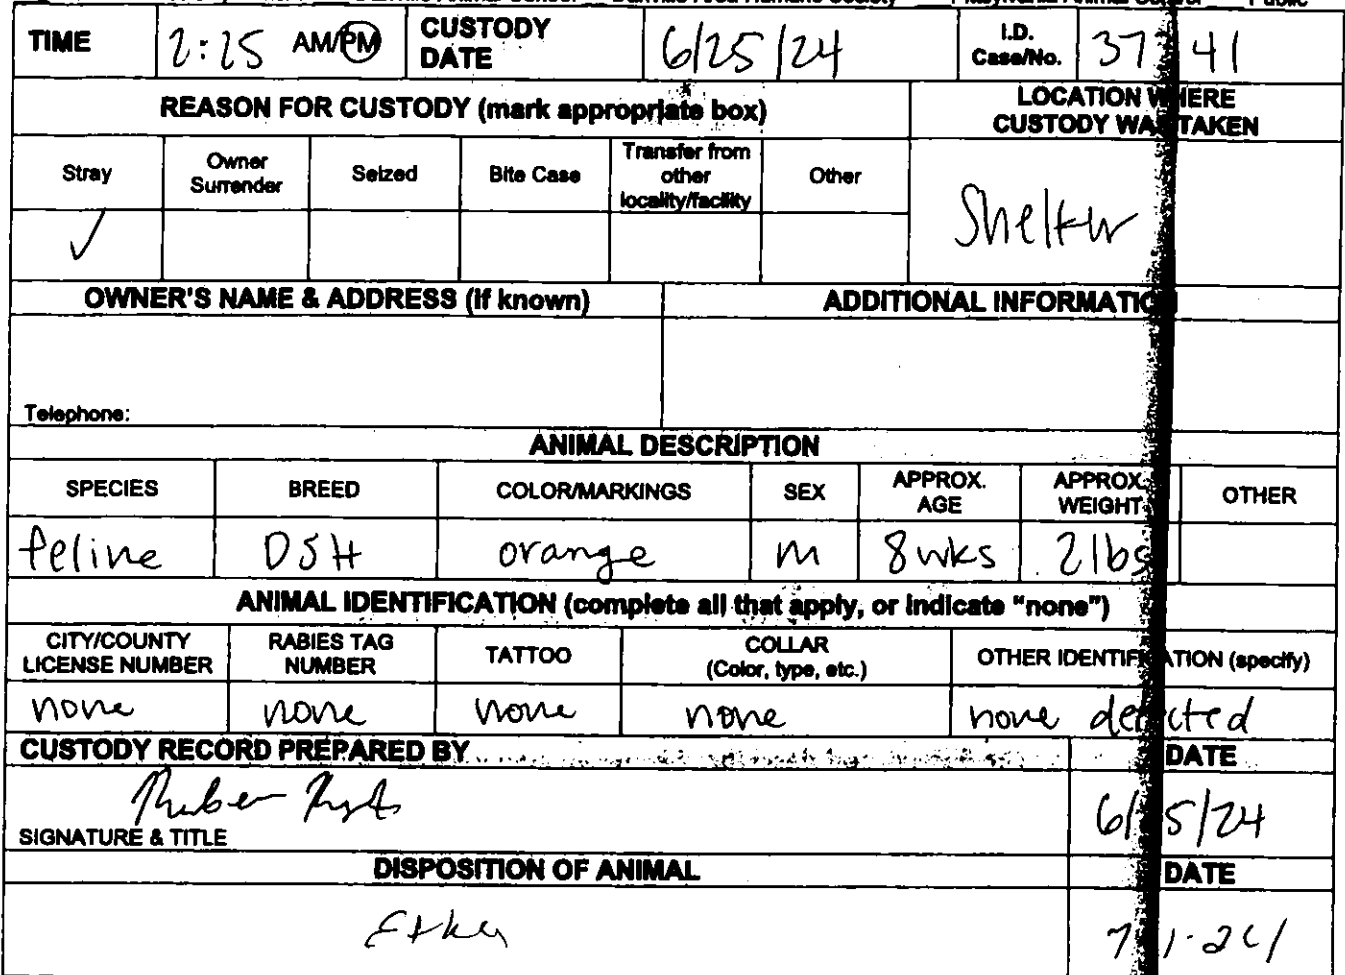 Danville Area Humane Society Pittsylvania Animal Control Public
TIME 2:25 AM/PM CUSTODY DATE 6/25/24 I.D. Case/No. 37 41
REASON FOR CUSTODY (mark appropriate box) LOCATION WHERE CUSTODY WAS TAKEN
Stray Owner Surrender Seized Bite Case Transfer from other locality/facility Other
✓ Shelter
OWNER'S NAME & ADDRESS (if known) ADDITIONAL INFORMATION
Telephone:
ANIMAL DESCRIPTION
SPECIES BREED COLOR/MARKINGS SEX APPROX. AGE APPROX. WEIGHT OTHER
feline DSH orange M 8 wks 2 lbs
ANIMAL IDENTIFICATION (complete all that apply, or indicate "none")
CITY/COUNTY LICENSE NUMBER RABIES TAG NUMBER TATTOO COLLAR (Color, type, etc.) OTHER IDENTIFICATION (specify)
none none none none none detected
CUSTODY RECORD PREPARED BY DATE
6/25/24
SIGNATURE & TITLE
DISPOSITION OF ANIMAL DATE